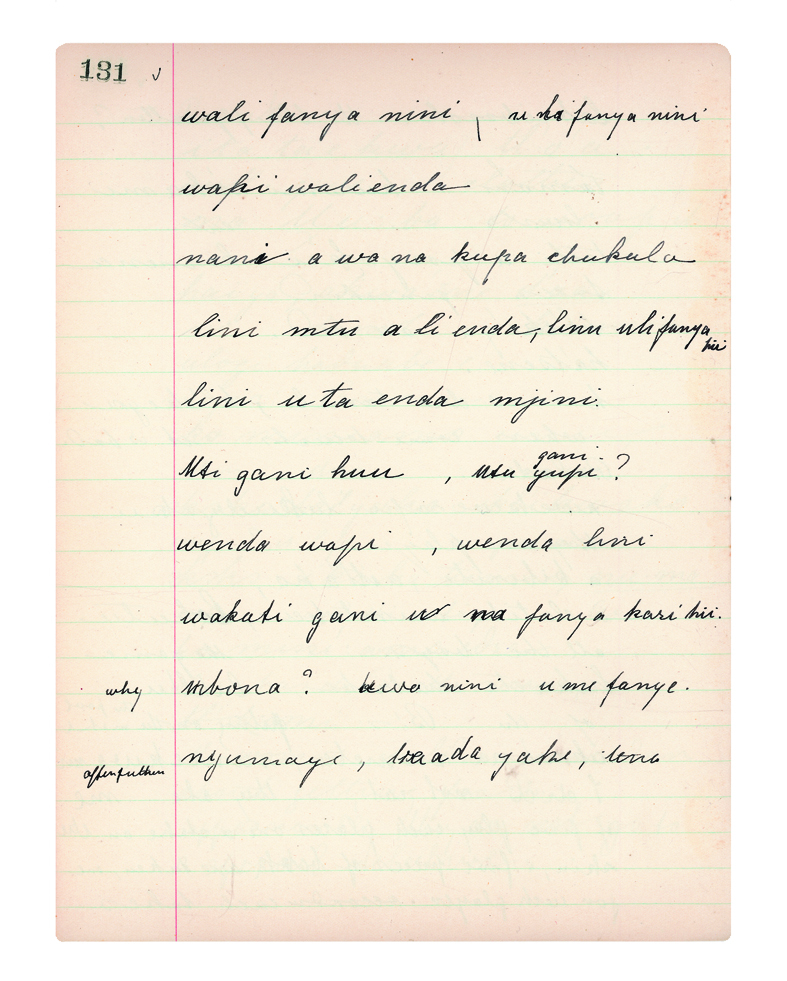 131 ✓
wali fanya nini , u na fanya nini
wapi walienda
nani a wa na kupa chukula
lini mtu a li enda, linu ulifanya hii
lini u ta enda mjini.
Mti gani huu , Mtu yupi gani ?
wenda wapi , wenda lini
wakati gani u na fanya kazi hii.
why Mbona ? kuwa nini u me fanye.
nyumaye , baada yake, tena